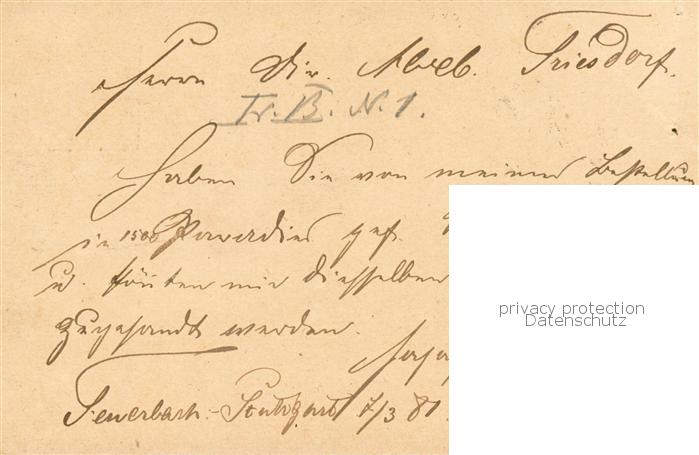 Herrn Dir. Abel. Triesdorf.
Tr. B. N. 1.
Haben Sie von meiner Bestellung
in 1500 Paradies gef.
u. könten mir dieselben
zugesandt werden.
Feuerbach-Stuttgart 7/3 81
privacy protection
Datenschutz